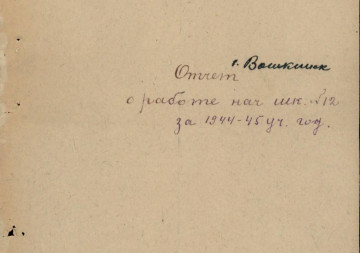 г. Вошкинк
Отчет
о работе нач шк. №12
за 1944-45 уч. год.